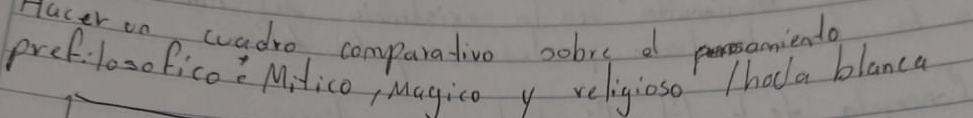 Hacer un cuadro comparativo sobre el pensamiento
prefilosofico: Mitico, Magico y religioso / hoda blanca